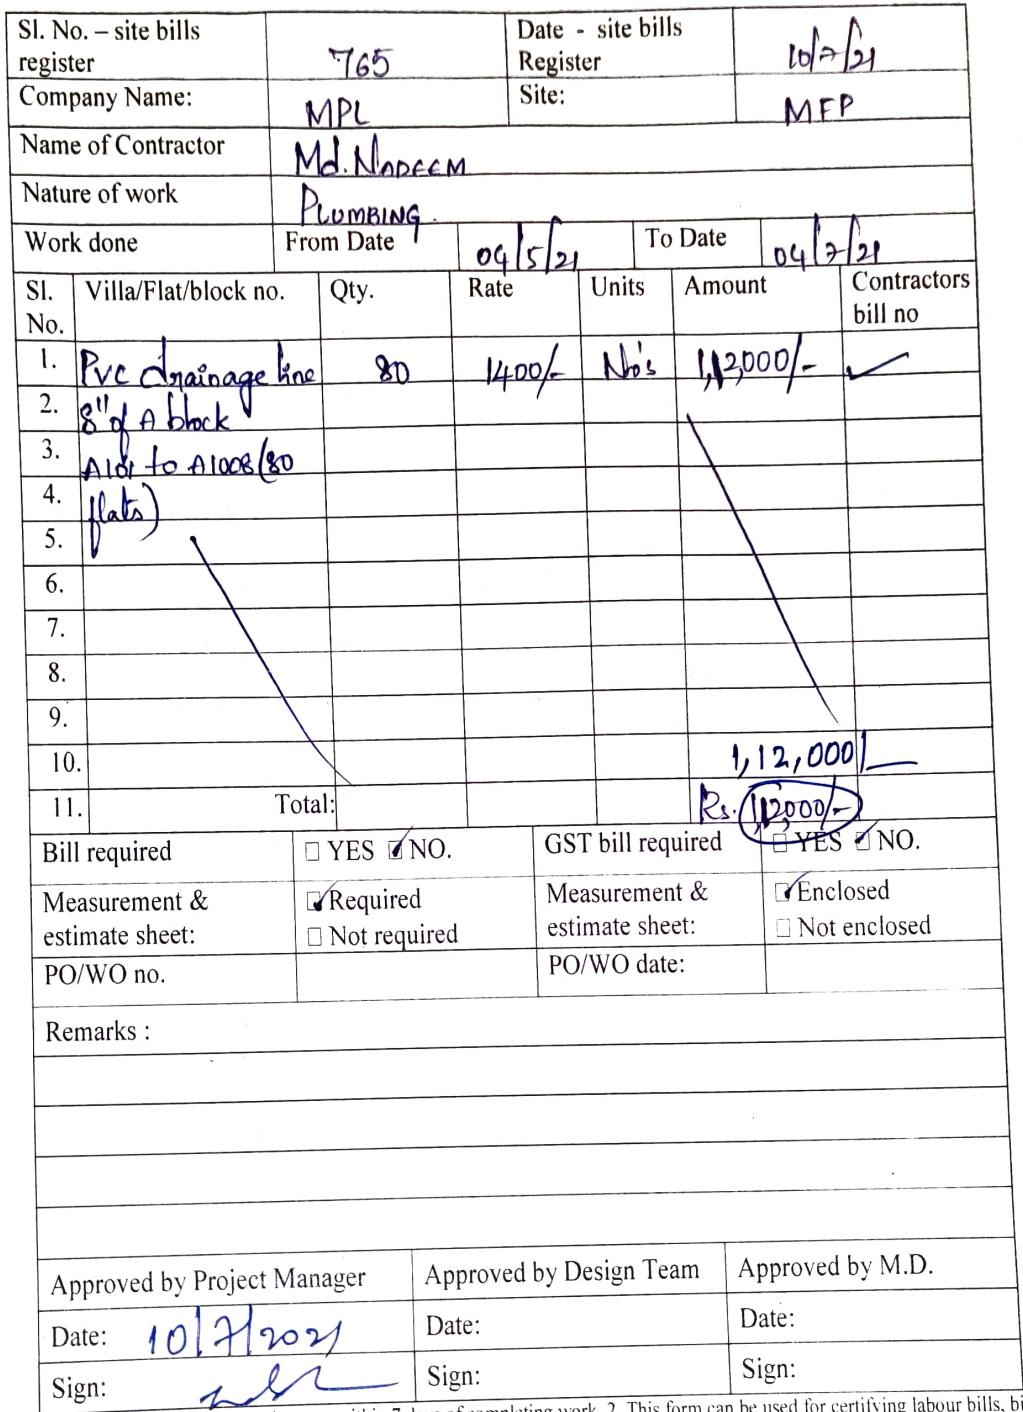 Sl. No. – site bills register 765 Date - site bills Register 10/7/21
Company Name: MPL Site: MFP
Name of Contractor Md. NADEEM
Nature of work PLUMBING.
Work done From Date 04/5/21 To Date 04/7/21
Sl. No. Villa/Flat/block no. Qty. Rate Units Amount Contractors bill no
1. Pvc drainage line 80 1400/- No's 1,12,000/- ✓
2. 8" of A block
3. A101 to A1008 (80
4. flats)
5.
6.
7.
8.
9.
10. 1,12,000/-
11. Total: Rs. 1,12,000/-
Bill required ☐ YES ☑ NO. GST bill required ☐ YES ☑ NO.
Measurement & estimate sheet: ☑ Required ☐ Not required Measurement & estimate sheet: ☑ Enclosed ☐ Not enclosed
PO/WO no. PO/WO date:
Remarks :
Approved by Project Manager Approved by Design Team Approved by M.D.
Date: 10/7/2021 Date: Date:
Sign: Sign: Sign:
completing work. 2. This form can be used for certifying labour bills, bi